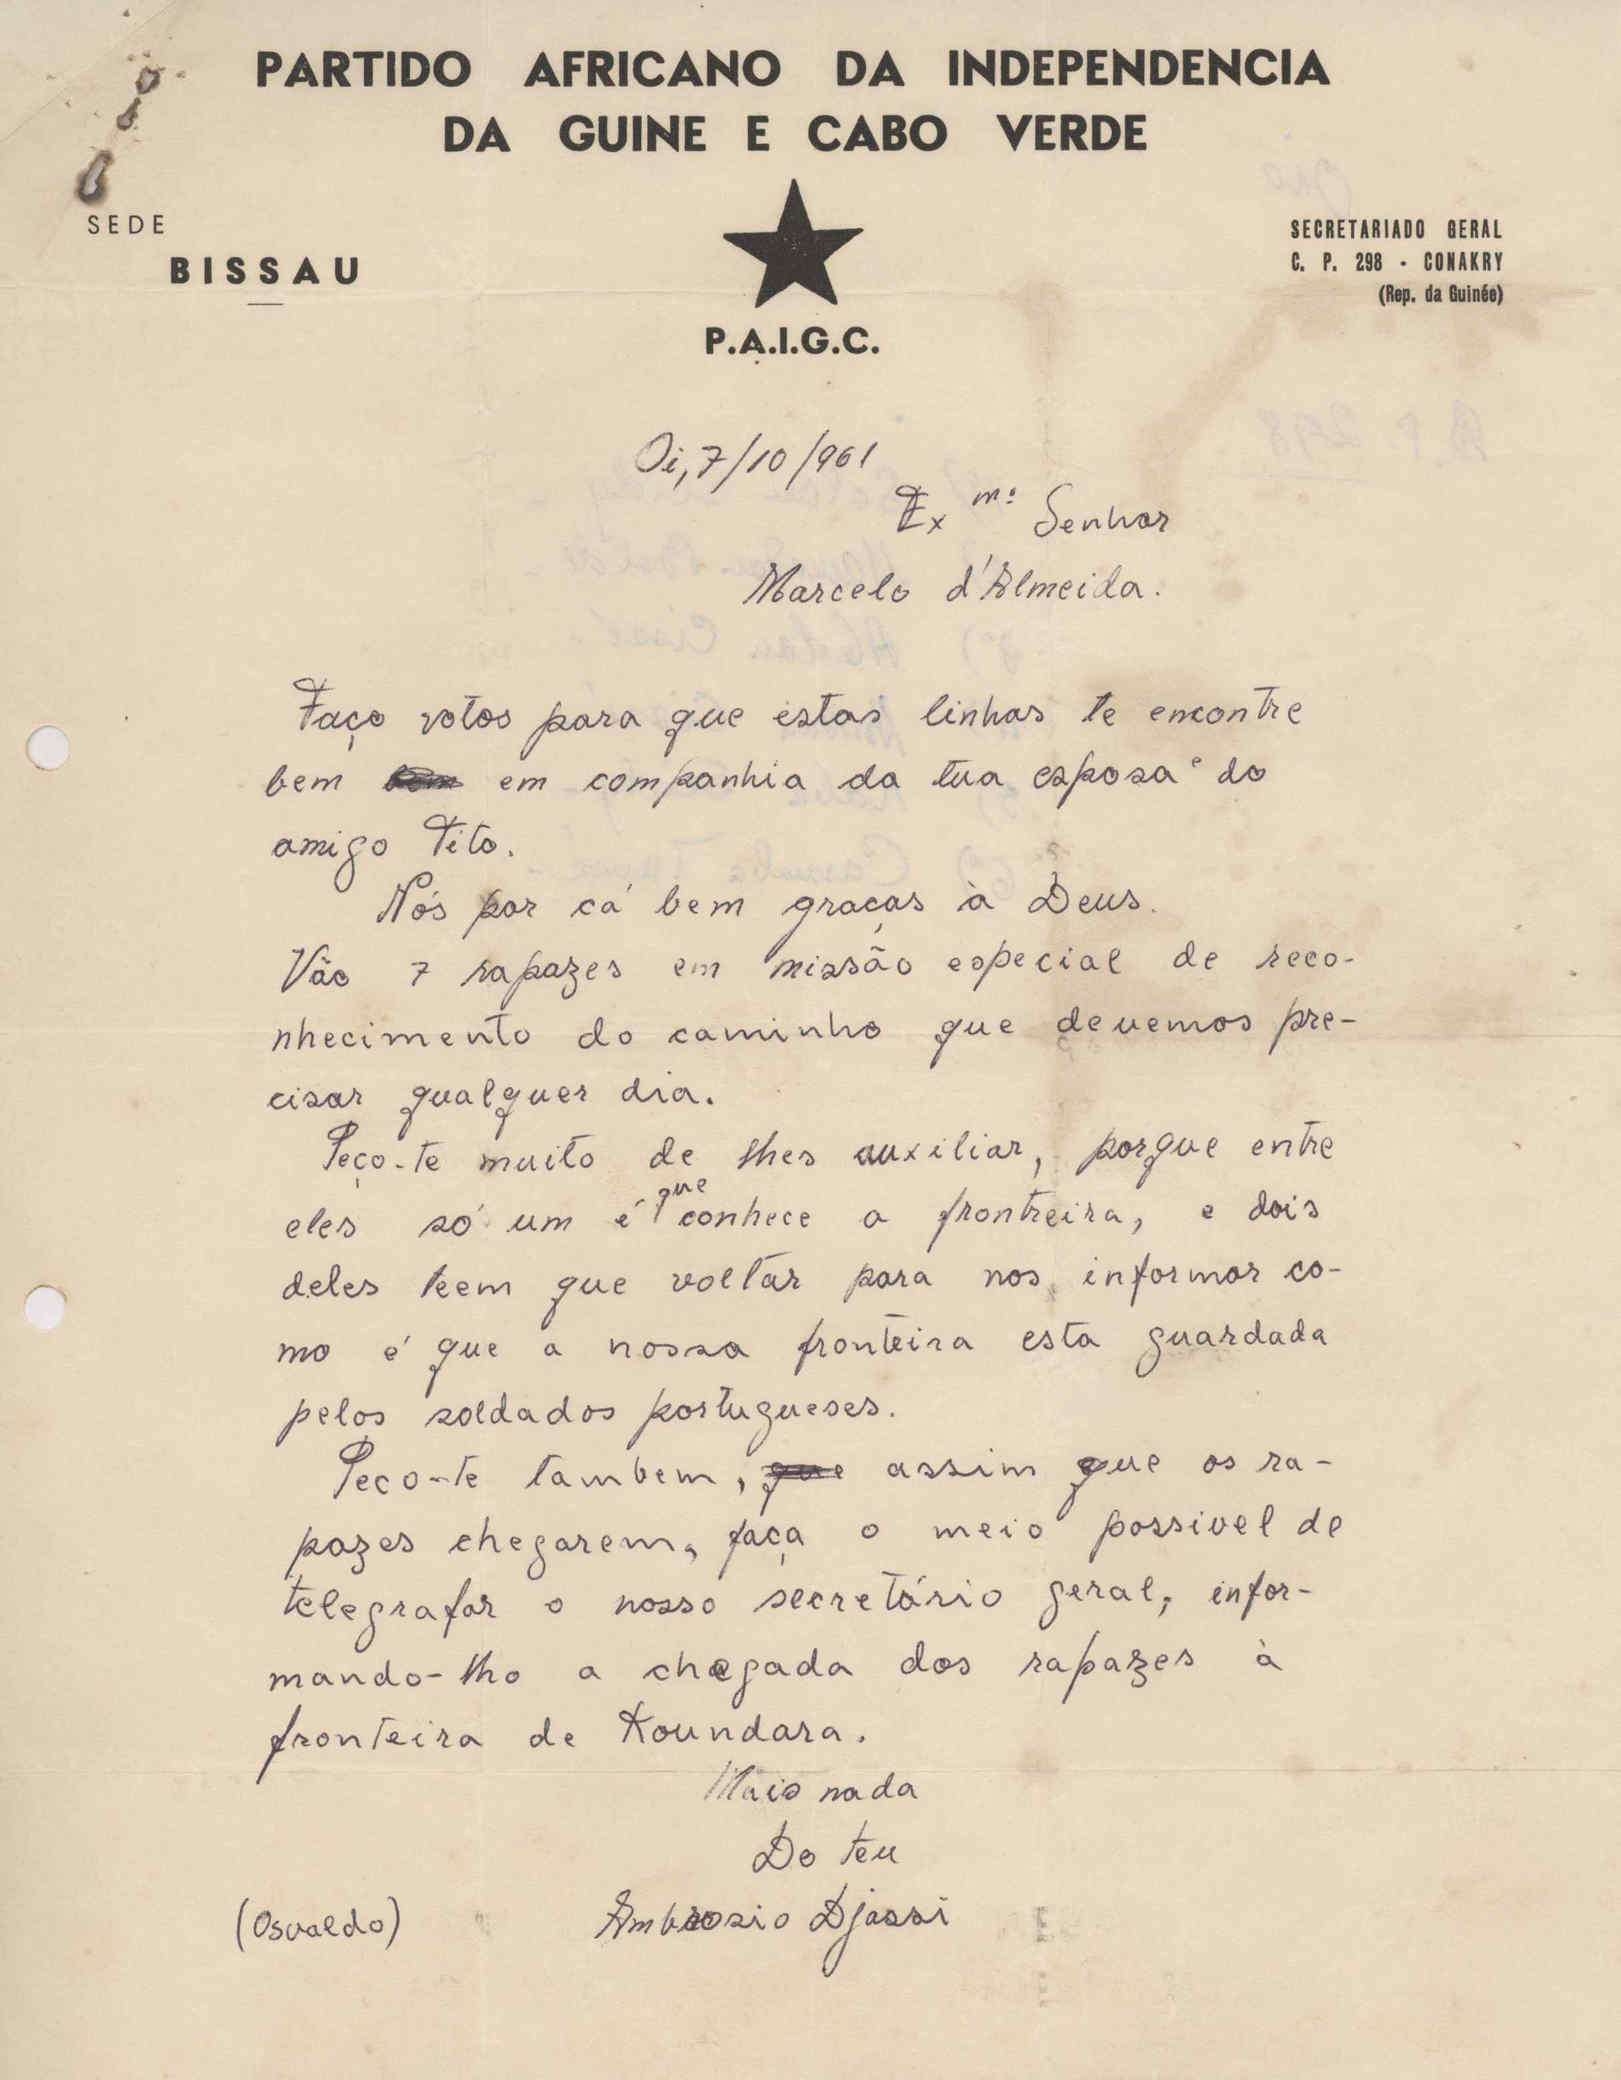 PARTIDO AFRICANO DA INDEPENDENCIA
DA GUINE E CABO VERDE
SEDE
BISSAU
P.A.I.G.C.
SECRETARIADO GERAL
C. P. 298 - CONAKRY
(Rep. da Guinée)
Oi, 7/10/961
Exmº Senhor
Marcelo d'Almeida.
Faço votos para que estas linhas te encontre
bem em companhia da tua esposa e do
amigo Tito.
Nós por cá bem graças à Deus.
Vão 7 rapazes em missão especial de reco-
nhecimento do caminho que devemos pre-
cisar qualquer dia.
Peço-te muito de lhes auxiliar, porque entre
eles só um é que conhece a frontreira, e dois
deles teem que voltar para nos informar co-
mo é que a nossa fronteira esta guardada
pelos soldados portugueses.
Peço-te tambem, que assim que os ra-
pazes chegarem, faça o meio possivel de
telegrafar o nosso secretário geral, infor-
mando-lho a chegada dos rapazes à
fronteira de Koundara.
Mais nada
Do teu
(Osvaldo) Ambrosio Djassi